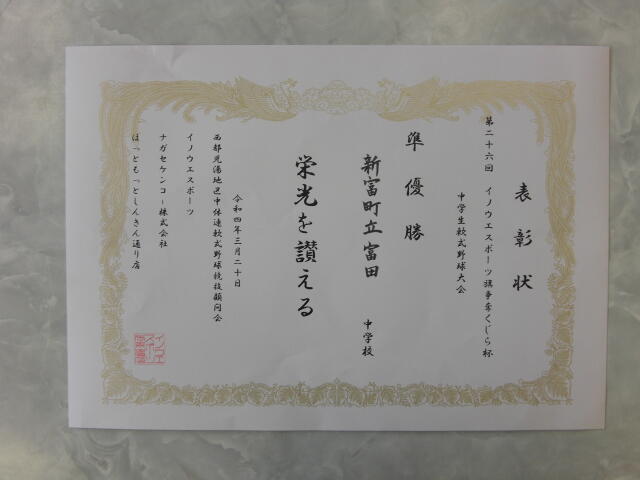 表彰状
第二十六回 イノウエスポーツ旗争奪くじら杯
中学生軟式野球大会
準優勝
新富町立富田 中学校
栄光を讃える
令和四年三月二十日
西都児湯地区中体連軟式野球競技顧問会
イノウエスポーツ
ナガセケンコー株式会社
ほっともっとしんきん通り店